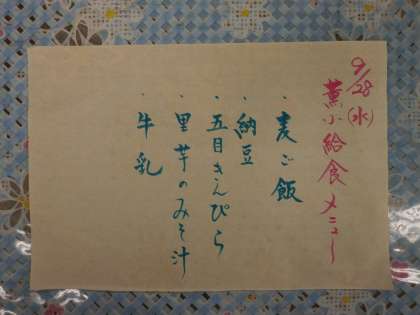 9/28(水)
薫小給食メニュー
・麦ご飯
・納豆
・五目きんぴら
・里芋のみそ汁
・牛乳